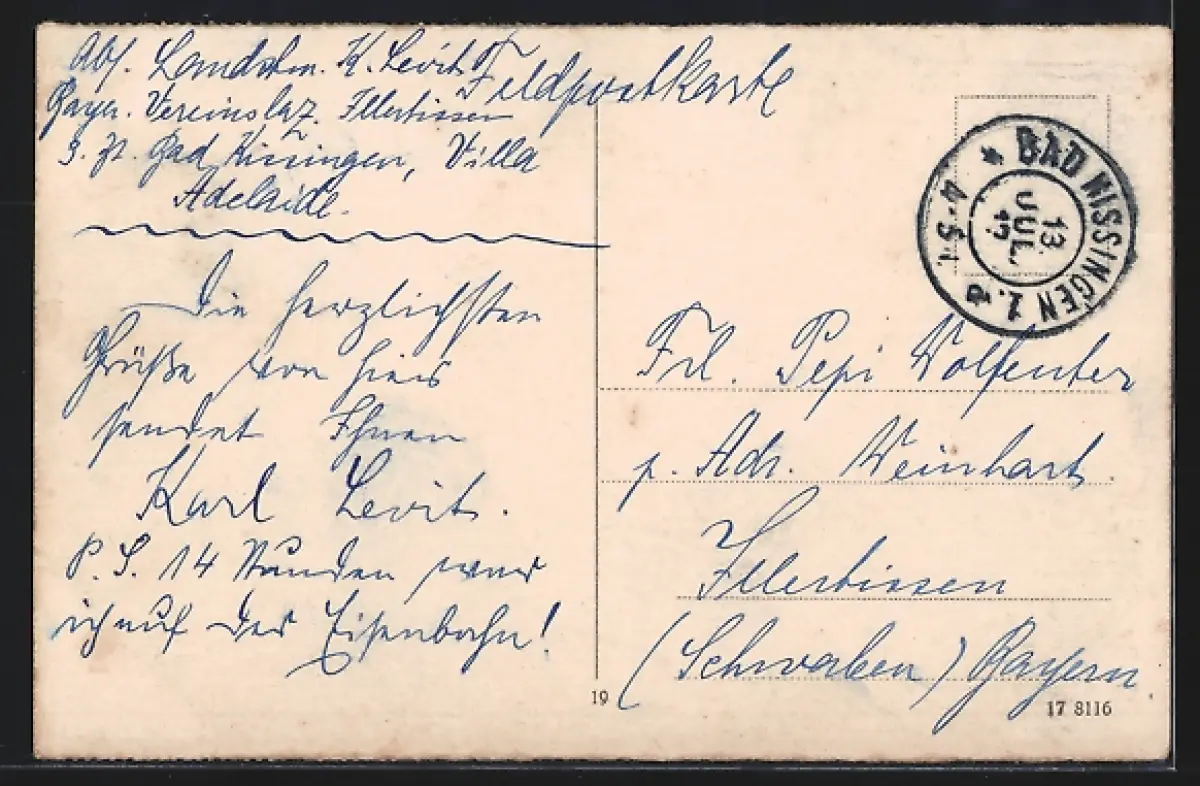 Abs. Landstm. K. Levit
Feldpostkarte
Bayer. Vereinslaz. Illertissen
z. Zt. Bad Kissingen, Villa
Adelaide.
Die herzlichsten
Grüße von hier
sendet Ihnen
Karl Levit.
P.S. 14 Stunden war
ich auf der Eisenbahn!
BAD KISSINGEN 1.
13
JUL.
4-5
Frl. Pepi Wolfenter
p. Adr. Weinhart.
Illertissen
(Schwaben) Bayern.
19
17 8116